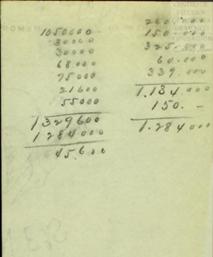 1050000
30000
30000
68.000
75000
21600
55000
1329600
1284000
45.600
260.000
150.000
325.000
60.000
339.000
1.134.000
150. -
1.284000